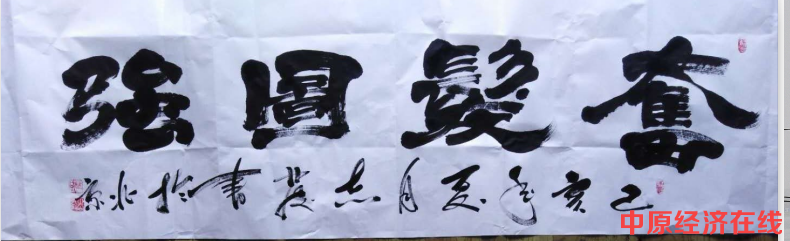 奮髮圖強
己亥年夏月志發書於北京
中原经济在线